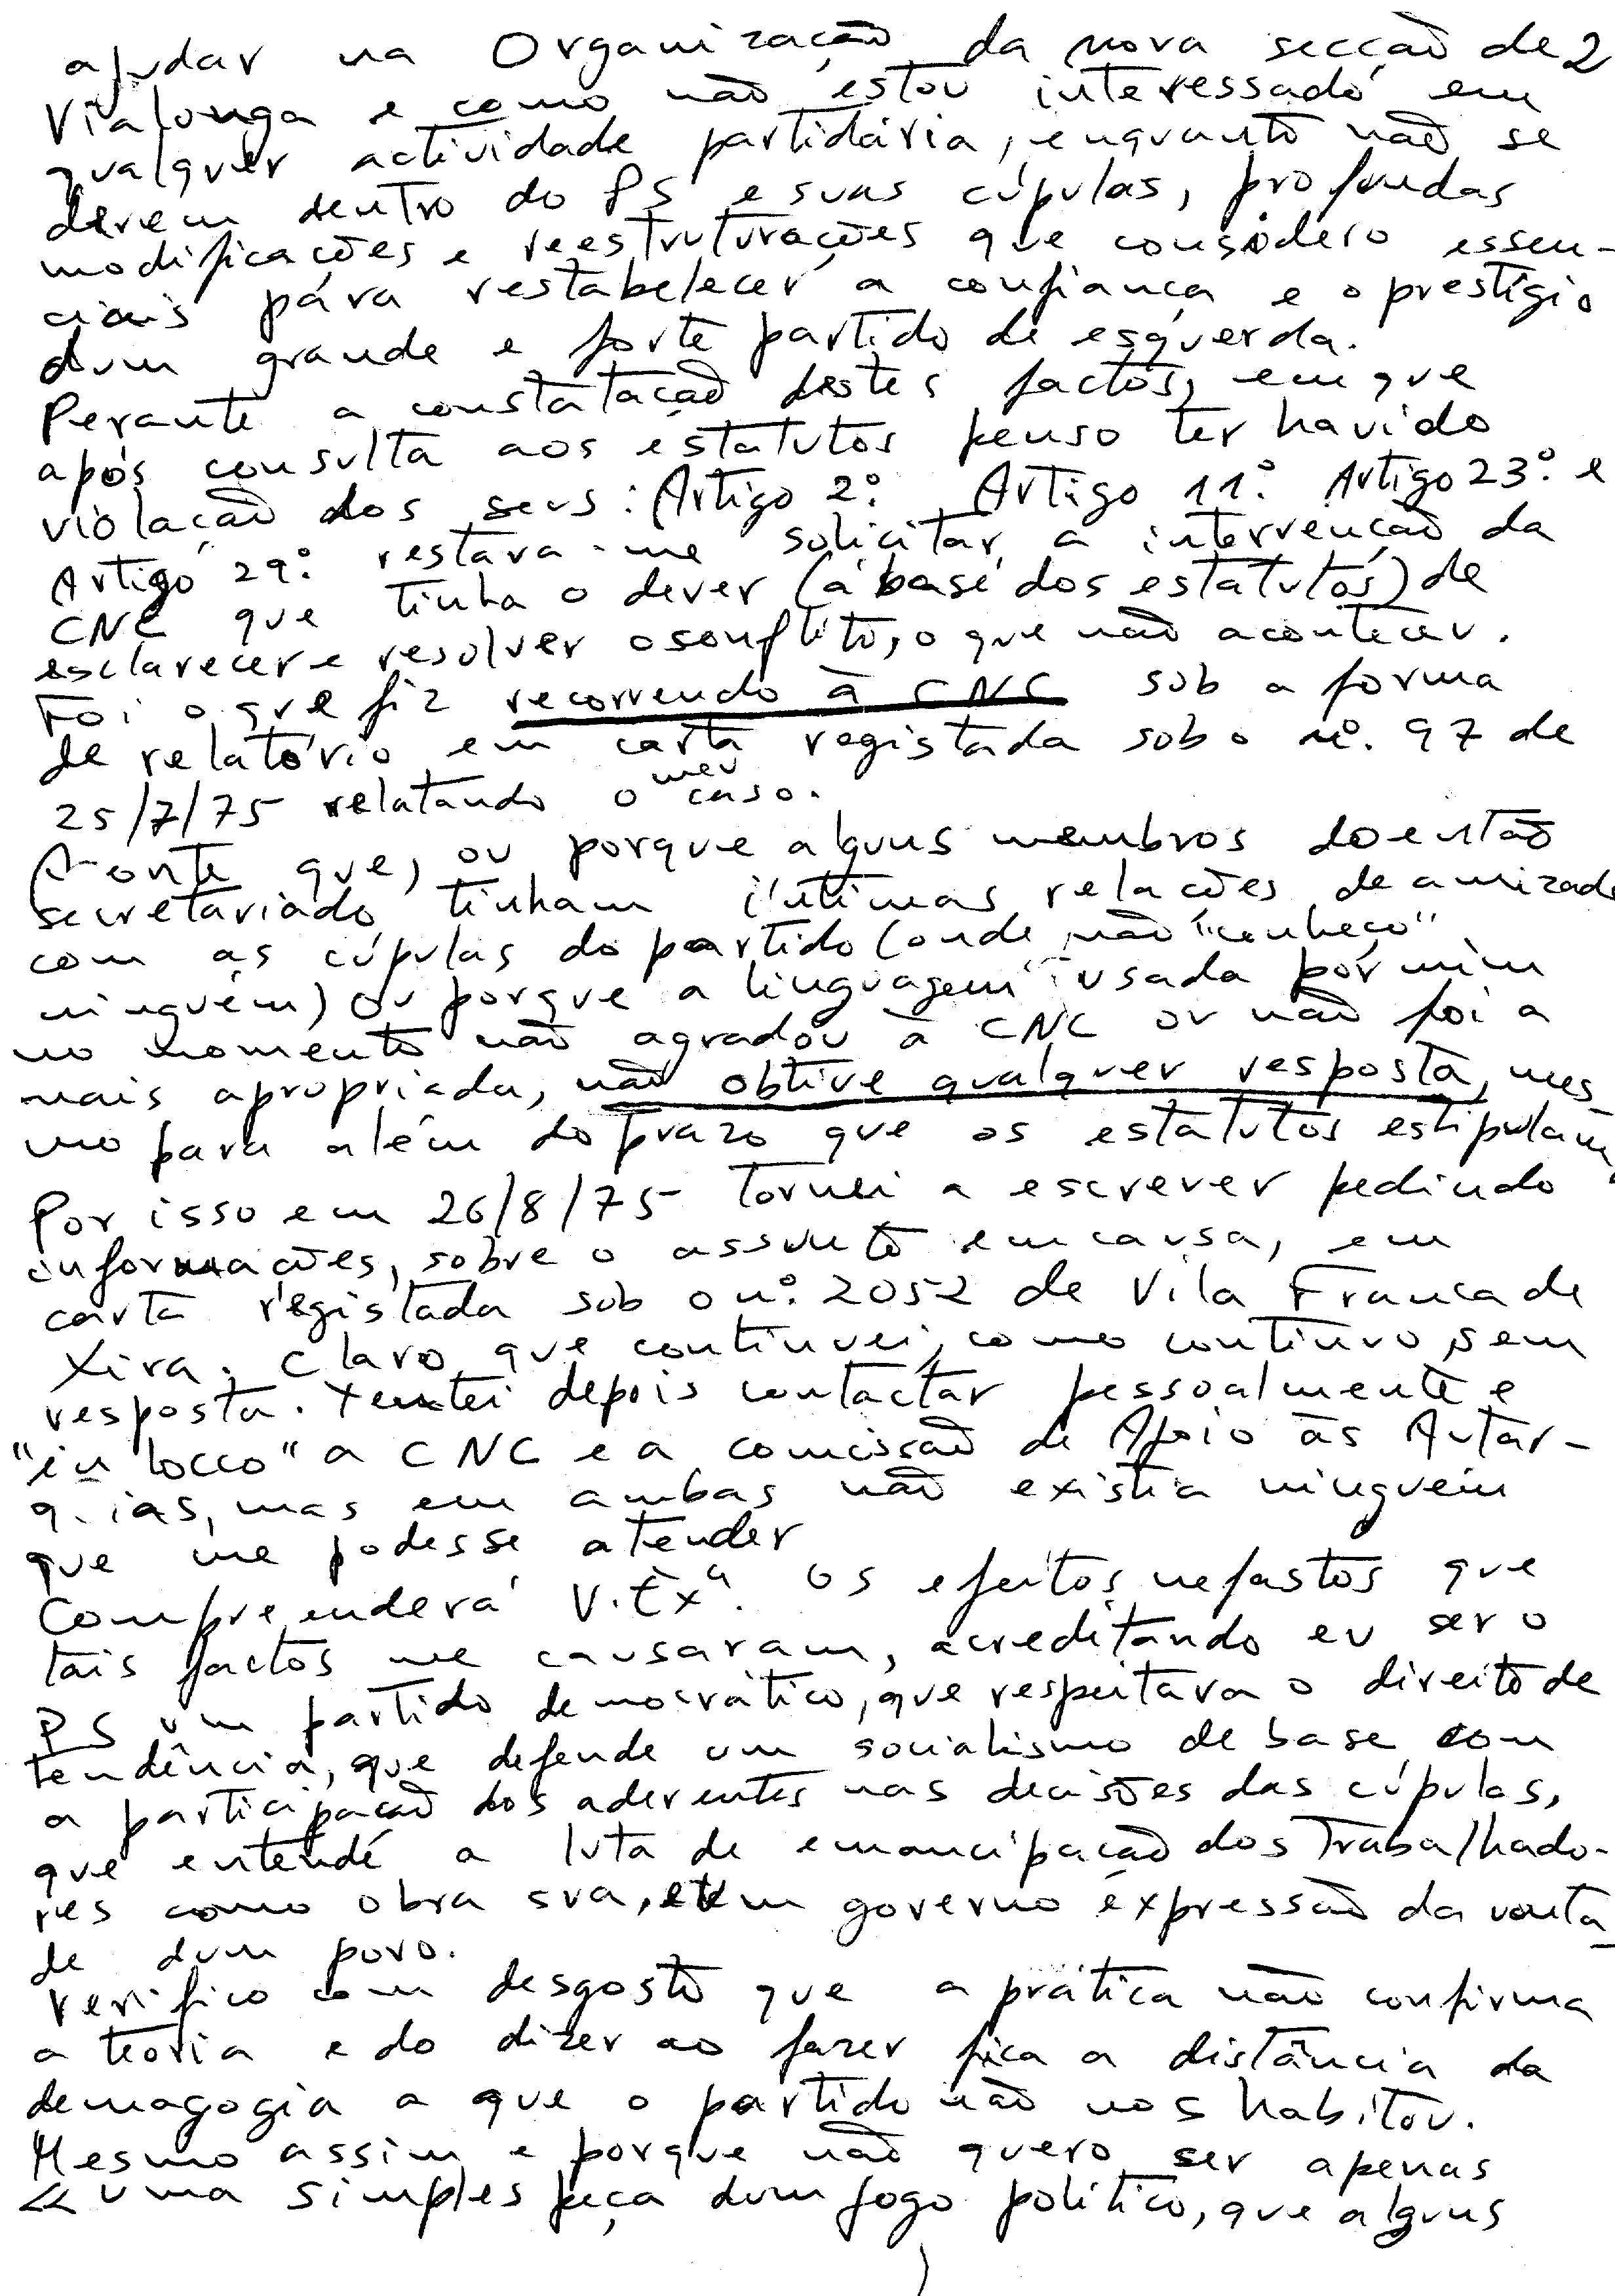 ajudar na Organização da nova secção de 2
Vialonga e como não estou interessado em
qualquer actividade partidária, enquanto não se
derem dentro do PS e suas cúpulas, profundas
modificações e reestruturações que considero essen-
ciais para restabelecer a confiança e o prestígio
dum grande e forte partido de esquerda.
Perante a constatação destes factos, em que
após consulta aos estatutos penso ter havido
violação dos seus: Artigo 2º. Artigo 11º. Artigo 23º. e
Artigo 29º. restava-me solicitar a intervenção da
CNC que tinha o dever (á base dos estatutos) de
esclarecer e resolver o conflito, o que não aconteceu.
Foi o que fiz recorrendo à CNC sob a forma
de relatório em carta registada sob o nº. 97 de
25/7/75 relatando o meu caso.
que, ou porque alguns membros do então
secretariado tinham íntimas relações de amizade
com as cúpulas do partido (onde não "conheço"
ninguém) ou porque a linguagem usada por mim
no momento não agradou à CNC ou não foi a
mais apropriada, não obtive qualquer resposta, mes-
mo para além do prazo que os estatutos estipulam.
Por isso em 26/8/75 tornei a escrever pedindo
informações, sobre o assunto em causa, em
carta registada sob o nº. 2052 de Vila Franca de
Xira. Claro que continuei, como continuo, sem
resposta. Tentei depois contactar pessoalmente e
"in locco" a CNC e a comissão de Apoio às Autar-
quias, mas em ambas não existia ninguém
que me podesse atender
Compreenderá V. Exª. os efeitos nefastos que
tais factos me causaram, acreditando eu ser o
PS um partido democrático, que respeitava o direito de
tendência, que defende um socialismo de base com
a participação dos aderentes nas decisões das cúpulas,
que entende a luta de emancipação dos Trabalhado-
res como obra sua, e um governo expressão da vonta-
de dum povo.
Verifico com desgosto que a prática não confirma
a teoria e do dizer ao fazer fica a distância da
demagogia a que o partido não nos habitou.
Mesmo assim e porque não quero ser apenas
<< uma simples peça dum jogo político, que alguns